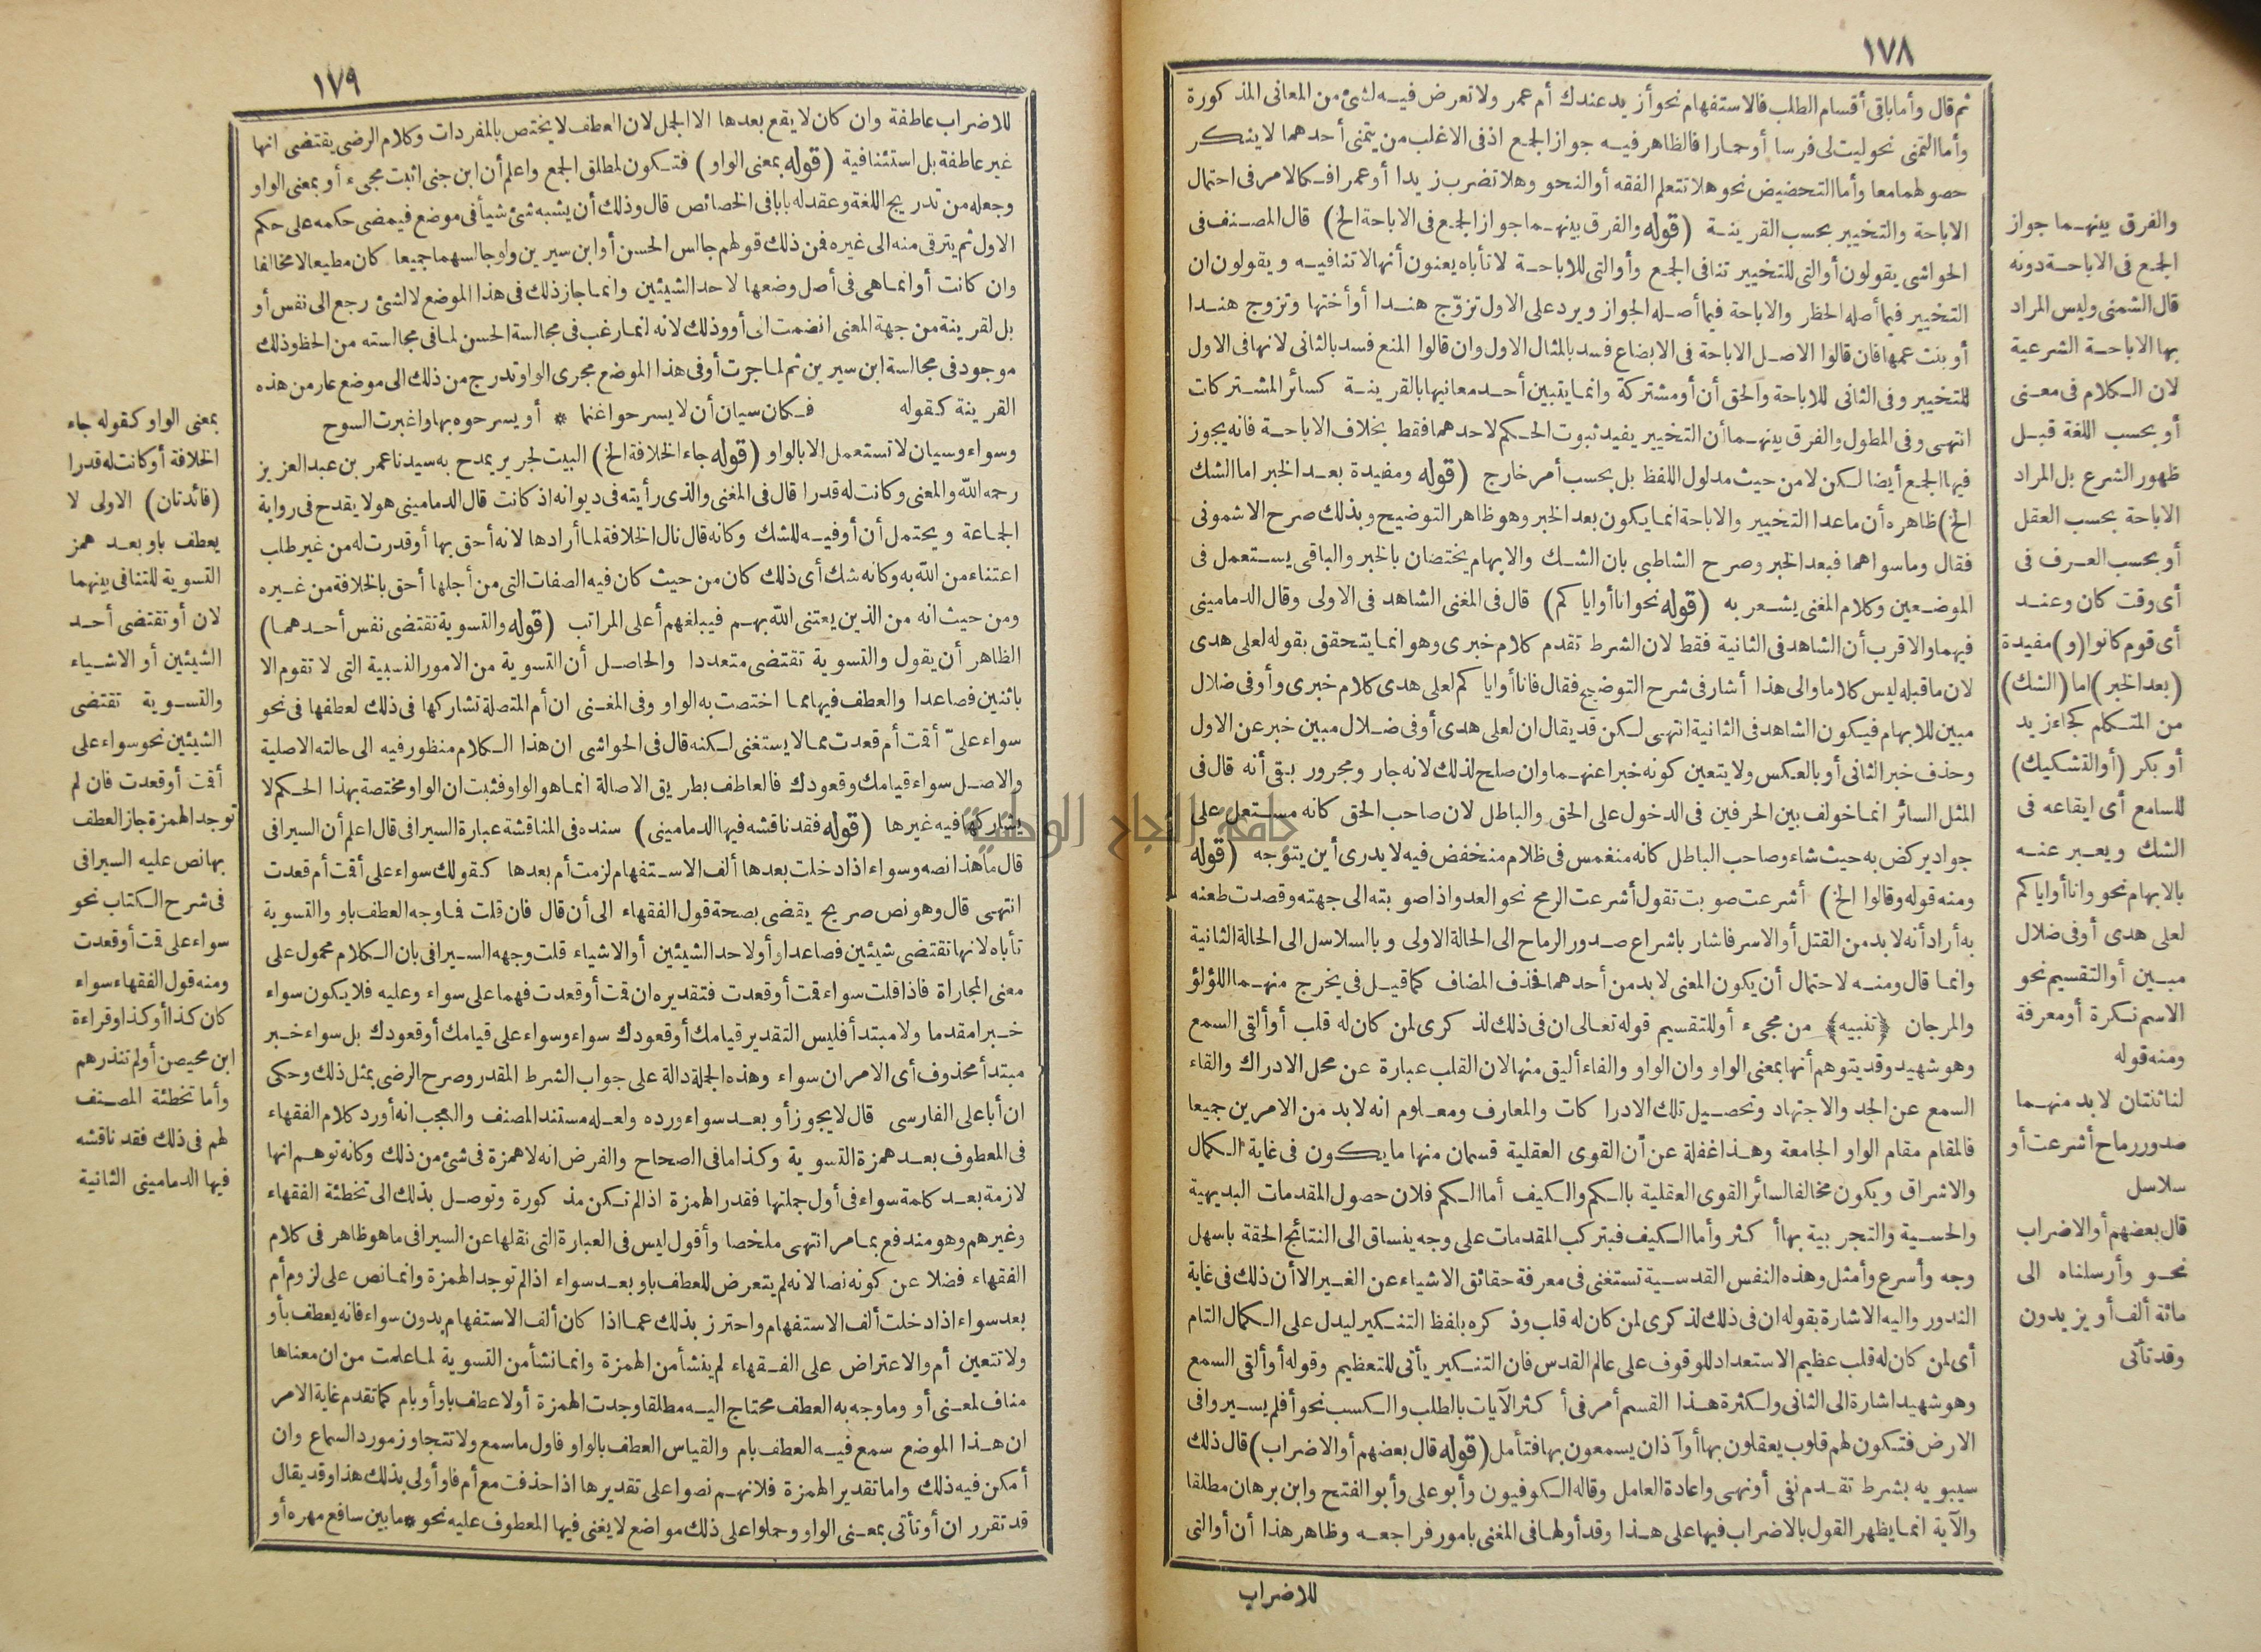 ١٧٨
ثم قال وأما باقى أقسام الطلب فالاستفهام نحو أزيد عندك أم عمر ولا تعرض فيه لشئ من المعانى المذكورة
وأما التمنى نحو ليت لى فرسا أو حمارا فالظاهر فيه جواز الجمع اذ فى الاغلب من يتمنى أحدهما لا ينكر
حصولهما معا وأما التحضيض نحو هلا تتعلم الفقه أو النحو وهلا تضرب زيدا أو عمرا فكالامر فى احتمال
الاباحة والتخيير بحسب القرينة (قوله والفرق بينهما جواز الجمع فى الاباحة الخ) قال المصنف فى
الحواشى يقولون أو التى للتخيير تنافى الجمع وأو التى للاباحة لا تأباه يعنون أنها لا تنافيه ويقولون ان
التخيير فيما أصله الحظر والاباحة فيما أصله الجواز ويرد على الاول تزوّج هندا أو أختها وتزوج هندا
أو بنت عمها فان قالوا الاصل الاباحة فى الابضاع فسد بالمثال الاول وان قالوا المنع فسد بالثانى لانها فى الاول
للتخيير وفى الثانى للاباحة والحق أن أو مشتركة وانما يتبين أحد معانيها بالقرينة كسائر المشتركات
انتهى وفى المطول والفرق بينهما أن التخيير يفيد ثبوت الحكم لاحدهما فقط بخلاف الاباحة فانه يجوز
فيها الجمع أيضا لكن لا من حيث مدلول اللفظ بل بحسب أمر خارج (قوله ومفيدة بعد الخبر اما الشك
الخ) ظاهره أن ماعدا التخيير والاباحة انما يكون بعد الخبر وهو ظاهر التوضيح وبذلك صرح الاشمونى
فقال وما سواهما فبعد الخبر وصرح الشاطبى بان الشك والابهام يختصان بالخبر والباقى يستعمل فى
الموضعين وكلام المغنى يشعر به (قوله نحو انا أو اياكم) قال فى المغنى الشاهد فى الاولى وقال الدمامينى
فيهما والاقرب أن الشاهد فى الثانية فقط لان الشرط تقدم كلام خبرى وهو انما يتحقق بقوله لعلى هدى
لان ما قبله ليس كلاما والى هذا أشار فى شرح التوضيح فقال فانا أو اياكم لعلى هدى كلام خبرى وأو فى ضلال
مبين للابهام فيكون الشاهد فى الثانية انتهى لكن قد يقال ان لعلى هدى أو فى ضلال مبين خبر عن الاول
وحذف خبر الثانى أو بالعكس ولا يتعين كونه خبرا عنهما وان صلح لذلك لانه جار ومجرور بقى أنه قال فى
المثل السائر انما خولف بين الحرفين فى الدخول على الحق والباطل لان صاحب الحق كانه مستعل على
جواد يركض به حيث شاء وصاحب الباطل كانه منغمس فى ظلام منخفض فيه لا يدرى أين يتوجه (قوله
ومنه قوله وقالوا الخ) أشرعت صوبت تقول أشرعت الرمح نحو العدو اذا صوبته الى جهته وقصدت طعنه
به أراد أنه لابد من القتل أو الاسر فاشار باشراع صدور الرماح الى الحالة الاولى وبالسلاسل الى الحالة الثانية
وانما قال ومنه لاحتمال أن يكون المعنى لابد من أحدهما فحذف المضاف كما قيل فى يخرج منهما اللؤلؤ
والمرجان ﴿تنبيه﴾ من مجىء أو للتقسيم قوله تعالى ان فى ذلك لذكرى لمن كان له قلب أو ألقى السمع
وهو شهيد وقد يتوهم أنها بمعنى الواو وان الواو والفاء أليق منها لان القلب عبارة عن محل الادراك والقاء
السمع عن الجد والاجتهاد وتحصيل تلك الادراكات والمعارف ومعلوم انه لابد من الامرين جميعا
فالمقام مقام الواو الجامعة وهذا غفلة عن أن القوى العقلية قسمان منها ما يكون فى غاية الكمال
والاشراق ويكون مخالفا لسائر القوى العقلية بالكم والكيف أما الكم فلان حصول المقدمات البديهية
والحسية والتجربية بها أكثر وأما الكيف فبتركب المقدمات على وجه ينساق الى النتائج الحقة باسهل
وجه وأسرع وأمثل وهذه النفس القدسية تستغنى فى معرفة حقائق الاشياء عن الغير الا أن ذلك فى غاية
الندور واليه الاشارة بقوله ان فى ذلك لذكرى لمن كان له قلب وذكره بلفظ التنكير ليدل على الكمال التام
أى لمن كان له قلب عظيم الاستعداد للوقوف على عالم القدس فان التنكير يأتى للتعظيم وقوله أو ألقى السمع
وهو شهيد اشارة الى الثانى ولكثرة هذا القسم أمر فى أكثر الآيات بالطلب والكسب نحو أفلم يسيروا فى
الارض فتكون لهم قلوب يعقلون بها أو آذان يسمعون بها فتأمل (قوله قال بعضهم أو الاضراب) قال ذلك
سيبويه بشرط تقدم نفى أو نهى واعادة العامل وقاله الكوفيون وأبو على وأبو الفتح وابن برهان مطلقا
والآية انما يظهر القول بالاضراب فيها على هذا وقد أولها فى المغنى بامور فراجعه وظاهر هذا أن أو التى
للاضراب
والفرق بينهما جواز
الجمع فى الاباحة دونه
قال الشمنى وليس المراد
بها الاباحة الشرعية
لان الكلام فى معنى
أو بحسب اللغة قبل
ظهور الشرع بل المراد
الاباحة بحسب العقل
أو بحسب العرف فى
أى وقت كان وعند
أى قوم كانوا (و) مفيدة
(بعد الخبر) اما (الشك)
من المتكلم كجاء زيد
أو بكر (أو التشكيك)
للسامع أى ايقاعه فى
الشك ويعبر عنه
بالابهام نحو وانا أو اياكم
لعلى هدى أو فى ضلال
مبين أو التقسيم نحو
الاسم نكرة أو معرفة
ومنه قوله
لنا ثنتان لابد منهما
صدور رماح أشرعت أو
سلاسل
قال بعضهم أو الاضراب
نحو وأرسلناه الى
مائة ألف أو يزيدون
وقد تأتى
١٧٩
للاضراب عاطفة وان كان لا يقع بعدها الا الجمل لان العطف لا يختص بالمفردات وكلام الرضى يقتضى انها
غير عاطفة بل استئنافية (قوله بمعنى الواو) فتكون لمطلق الجمع واعلم أن ابن جنى اثبت مجىء أو بمعنى الواو
وجعله من تدريج اللغة وعقد له بابا فى الخصائص قال وذلك أن يشبه شئ شيأ فى موضع فيمضى حكمه على حكم
الاول ثم يترقى منه الى غيره فمن ذلك قولهم جالس الحسن أو ابن سيرين ولو جالسهما جميعا كان مطيعا لا مخالفا
وان كانت أو انما هى فى أصل وضعها لاحد الشيئين وانما جاز ذلك فى هذا الموضع لا لشئ رجع الى نفس أو
بل لقرينة من جهة المعنى انضمت الى أو وذلك لانه انما رغب فى مجالسة الحسن لما فى مجالسته من الحظ وذلك
موجود فى مجالسة ابن سيرين ثم لما جرت أو فى هذا الموضع مجرى الواو تدرج من ذلك الى موضع عار من هذه
القرينة كقوله فكان سيان أن لا يسرحوا غنما * أو يسرحوه بها واغبرت السوح
وسواء وسيان لا تستعمل الا بالواو (قوله جاء الخلافة الخ) البيت لجرير يمدح به سيدنا عمر بن عبد العزيز
رحمه الله والمعنى وكانت له قدرا قال فى المغنى والذى رأيته فى ديوانه اذ كانت قال الدمامينى هو لا يقدح فى رواية
الجماعة ويحتمل أن أو فيه للشك وكانه قال نال الخلافة لما أرادها لانه أحق بها أو قدرت له من غير طلب
اعتناء من الله به وكانه شك أى ذلك كان من حيث كان فيه الصفات التى من أجلها أحق بالخلافة من غيره
ومن حيث انه من الذين يعتنى الله بهم فيبلغهم أعلى المراتب (قوله والتسوية تقتضى نفس أحدهما)
الظاهر أن يقول والتسوية تقتضى متعددا والحاصل أن التسوية من الامور النسبية التى لا تقوم الا
باثنين فصاعدا والعطف فيها مما اختصت به الواو وفى المغنى ان أم المتصلة تشاركها فى ذلك لعطفها فى نحو
سواء علىّ أقت أم قعدت مما لا يستغنى لكنه قال فى الحواشى ان هذا الكلام منظور فيه الى حالته الاصلية
والاصل سواء قيامك وقعودك فالعاطف بطريق الاصالة انما هو الواو فثبت ان الواو مختصة بهذا الحكم لا
يشاركها فيه غيرها (قوله فقد ناقشه فيها الدمامينى) سنده فى المناقشة عبارة السيرافى قال اعلم أن السيرافى
قال ما هذا نصه وسواء اذا دخلت بعدها ألف الاستفهام لزمت أم بعدها كقولك سواء على أقت أم قعدت
انتهى قال وهو نص صريح يقضى بصحة قول الفقهاء الى أن قال فان قلت فما وجه العطف باو والتسوية
تأباه لانها تقتضى شيئين فصاعدا وأو لاحد الشيئين أو الاشياء قلت وجهه السيرافى بان الكلام محمول على
معنى المجاراة فاذا قلت سواء قت أو قعدت فتقديره ان قت أو قعدت فهما على سواء وعليه فلا يكون سواء
خبرا مقدما ولا مبتدأ فليس التقدير قيامك أو قعودك سواء وسواء على قيامك أو قعودك بل سواء خبر
مبتدأ محذوف أى الامران سواء وهذه الجملة دالة على جواب الشرط المقدر وصرح الرضى بمثل ذلك وحكى
ان أبا على الفارسى قال لا يجوز أو بعد سواء ورده ولعله مستند المصنف والعجب انه أورد كلام الفقهاء
فى المعطوف بعد همزة التسوية وكذا ما فى الصحاح والفرض انه لا همزة فى شئ من ذلك وكانه توهم انها
لازمة بعد كلمة سواء فى أول جملتها فقدر الهمزة اذا لم تكن مذكورة وتوصل بذلك الى تخطئة الفقهاء
وغيرهم وهو مندفع بما مر انتهى ملخصا وأقول ليس فى العبارة التى نقلها عن السيرافى ما هو ظاهر فى كلام
الفقهاء فضلا عن كونه نصا لانه لم يتعرض للعطف باو بعد سواء اذا لم توجد الهمزة وانما نص على لزوم أم
بعد سواء اذا دخلت ألف الاستفهام واحترز بذلك عما اذا كان ألف الاستفهام بدون سواء فانه يعطف بأو
ولا تتعين أم والاعتراض على الفقهاء لم ينشأ من الهمزة وانما نشأ من التسوية لما علمت من ان معناها
مناف لمعنى أو وما وجه به العطف محتاج اليه مطلقا وجدت الهمزة أو لا عطف باو أو بام كما تقدم غاية الامر
ان هذا الموضع سمع فيه العطف بام والقياس العطف بالواو فاول ما سمع ولا تتجاوز مورد السماع وان
أمكن فيه ذلك واما تقدير الهمزة فلانهم نصوا على تقديرها اذا حذفت مع أم فاو أولى بذلك هذا وقد يقال
قد تقرر ان أو تأتى بمعنى الواو وحملوا على ذلك مواضع لا يغنى فيها المعطوف عليه نحو * ما بين سافع مهره أو
بمعنى الواو كقوله جاء
الخلافة أو كانت له قدرا
(فائدتان) الاولى لا
يعطف باو بعد همز
التسوية للتنافى بينهما
لان أو تقتضى أحد
الشيئين أو الاشياء
والتسوية تقتضى
الشيئين نحو سواء على
أقت أو قعدت فان لم
توجد الهمزة جاز العطف
بها نص عليه السيرافى
فى شرح الكتاب نحو
سواء على قت أو قعدت
ومنه قول الفقهاء سواء
كان كذا أو كذا وقراءة
ابن محيصن أو لم تنذرهم
وأما تخطئة المصنف
لهم فى ذلك فقد ناقشه
فيها الدمامينى الثانية
جامعة النجاح الوطنية